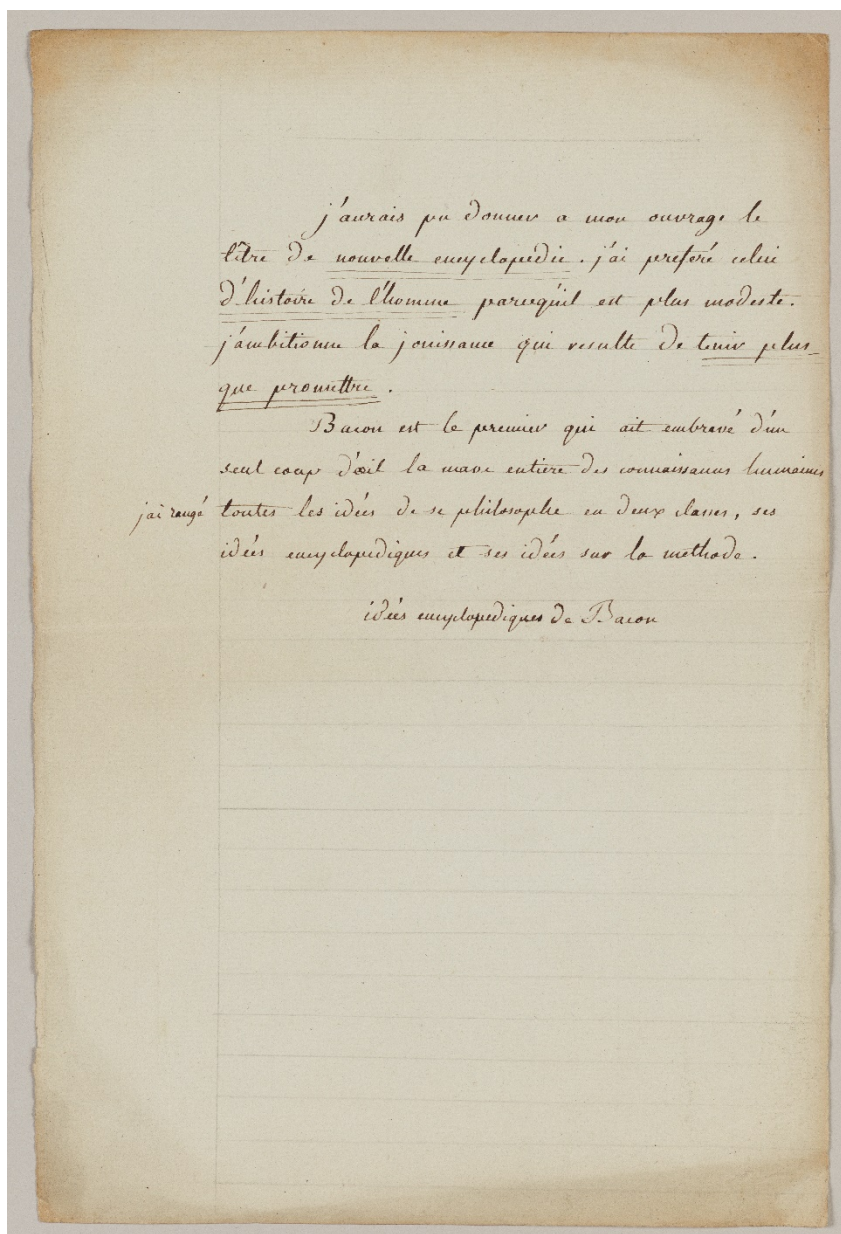 j'aurais pu donner a mon ouvrage le
titre de nouvelle encyclopedie. j'ai preferé celui
d'histoire de l'homme parcequ'il est plus modeste.
j'ambitionne la jouissance qui resulte de tenir plus
que promettre.
Bacon est le premier qui ait embrassé d'un
seul coup d'œil la masse entière des connaissances humaines
j'ai rangé toutes les idées de se philosophe en deux classes, ses
idées encyclopediques et ses idées sur la methode.
idées encyclopediques de Bacon